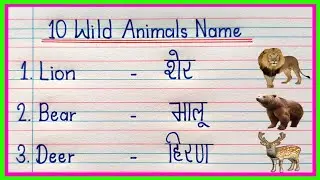 10 Wild Animals Name
1. Lion - शेर
2. Bear - भालू
3. Deer - हिरण